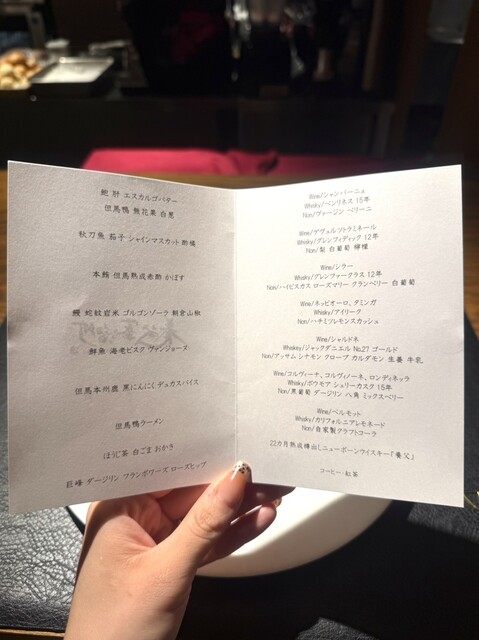 鮑 肝 エスカルゴバター
但馬鴨 無花果 白葱
秋刀魚 茄子 シャインマスカット 酢橘
本鮪 但馬熟成赤酢 かぼす
鰻 蛇紋岩米 ゴルゴンゾーラ 朝倉山椒
鮮魚 海老ビスク ヴァンジョーヌ
但馬本州鹿 黒にんにく デュカスパイス
但馬鴨ラーメン
ほうじ茶 白ごま おかき
巨峰 ダージリン フランボワーズ ローズヒップ
Wine/シャンパーニュ
Whisky/ベンリネス 15年
Non/ヴァージン ベリーニ
Wine/ゲヴュルツトラミネール
Whisky/グレンフィディック 12年
Non/梨 白葡萄 檸檬
Wine/シラー
Whisky/グレンファークラス 12年
Non/ハイビスカス ローズマリー クランベリー 白葡萄
Wine/ネッビオーロ、タミンガ
Whisky/アイリーク
Non/ハチミツレモンスカッシュ
Wine/シャルドネ
Whiskey/ジャックダニエル No.27 ゴールド
Non/アッサム シナモン クローブ カルダモン 生姜 牛乳
Wine/コルヴィーナ、コルヴィノーネ、ロンディネッラ
Whisky/ボウモア シェリーカスク 15年
Non/黒葡萄 ダージリン 八角 ミックスベリー
Wine/ベルモット
Whisky/カリフォルニアレモネード
Non/自家製クラフトコーラ
22カ月熟成樽出しニューボーンウイスキー「養父」
コーヒー・紅茶